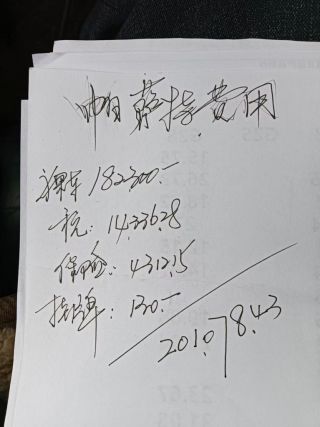 帕萨特费用
裸车 182300.-
税: 14336.28
保险: 4312.15
挂牌: 130.-
201078.43